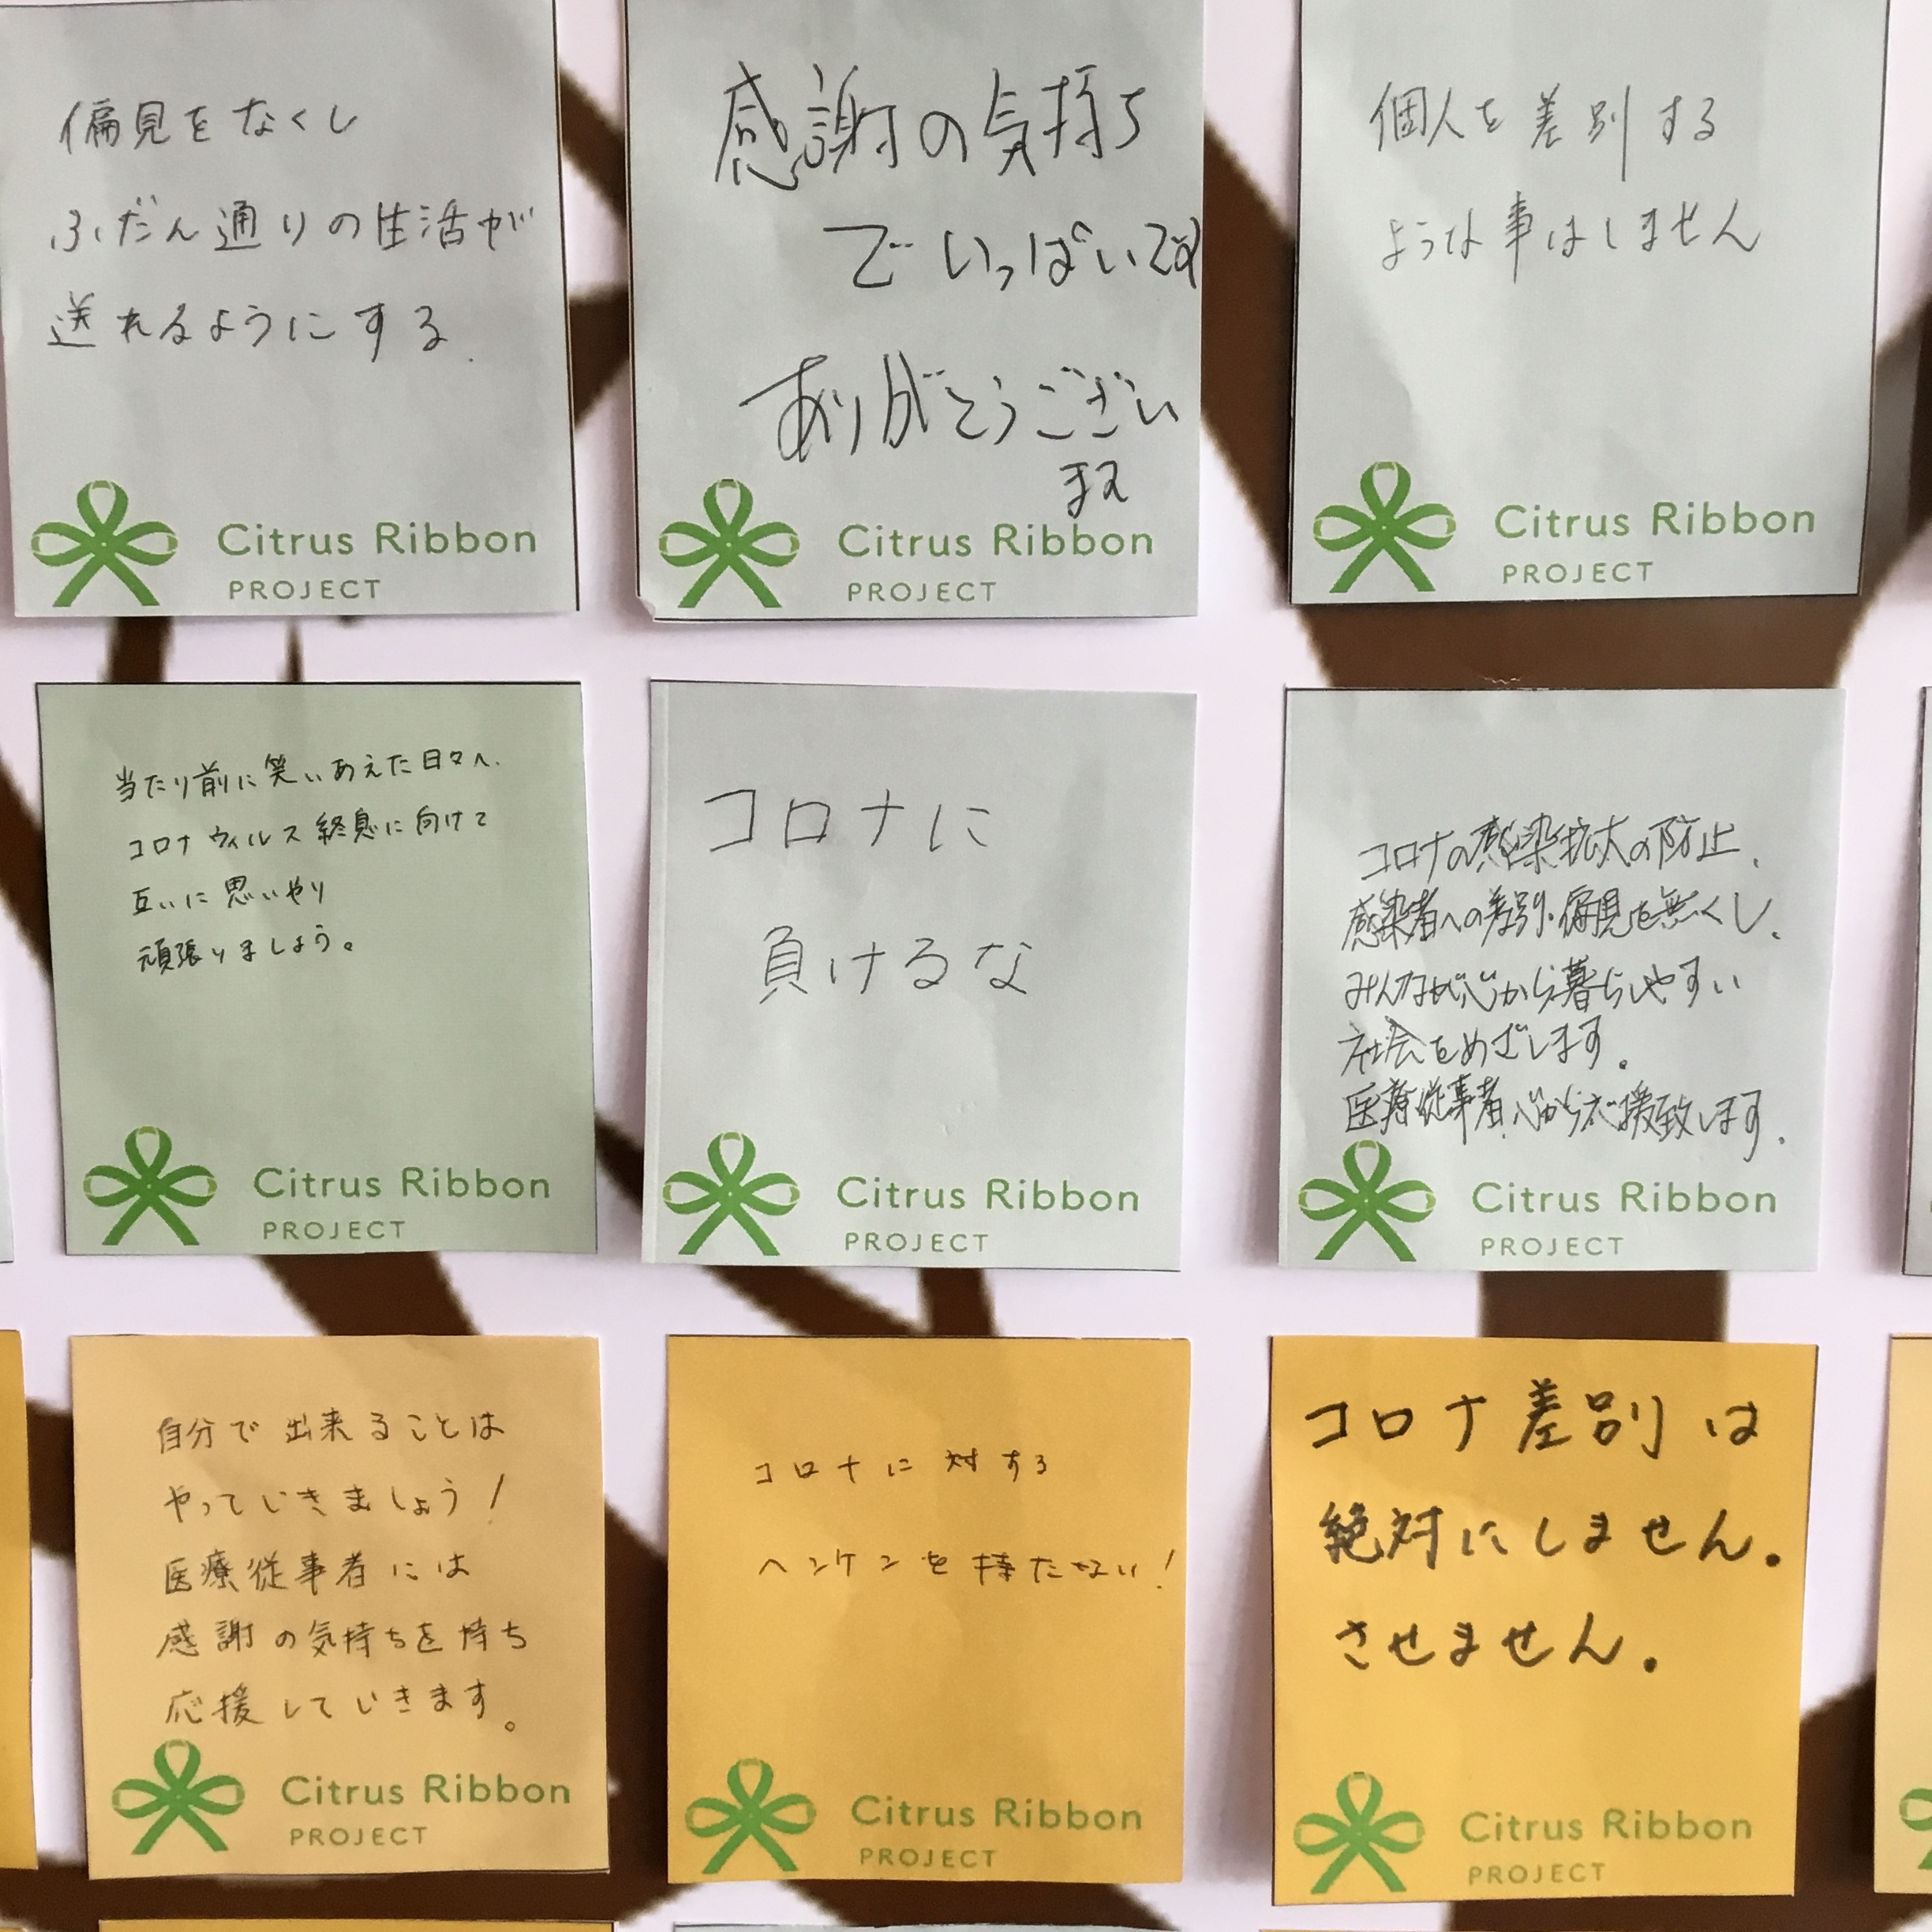 偏見をなくし
ふだん通りの生活が
送れるようにする.
Citrus Ribbon
PROJECT
感謝の気持ち
でいっぱいです
ありがとうござい
ます
Citrus Ribbon
PROJECT
個人を差別する
ような事はしません
Citrus Ribbon
PROJECT
当たり前に笑いあえた日々へ.
コロナウィルス終息に向けて
互いに思いやり
頑張りましょう。
Citrus Ribbon
PROJECT
コロナに
負けるな
Citrus Ribbon
PROJECT
コロナの感染拡大の防止、
感染者への差別・偏見を無くし、
みんなが心から暮らしやすい
社会をめざします。
医療従事者、心から応援致します。
Citrus Ribbon
PROJECT
自分で出来ることは
やっていきましょう!
医療従事者には
感謝の気持ちを持ち
応援していきます。
Citrus Ribbon
PROJECT
コロナに対する
ヘンケンを持たない!
Citrus Ribbon
PROJECT
コロナ差別は
絶対にしません。
させません。
Citrus Ribbon
PROJECT